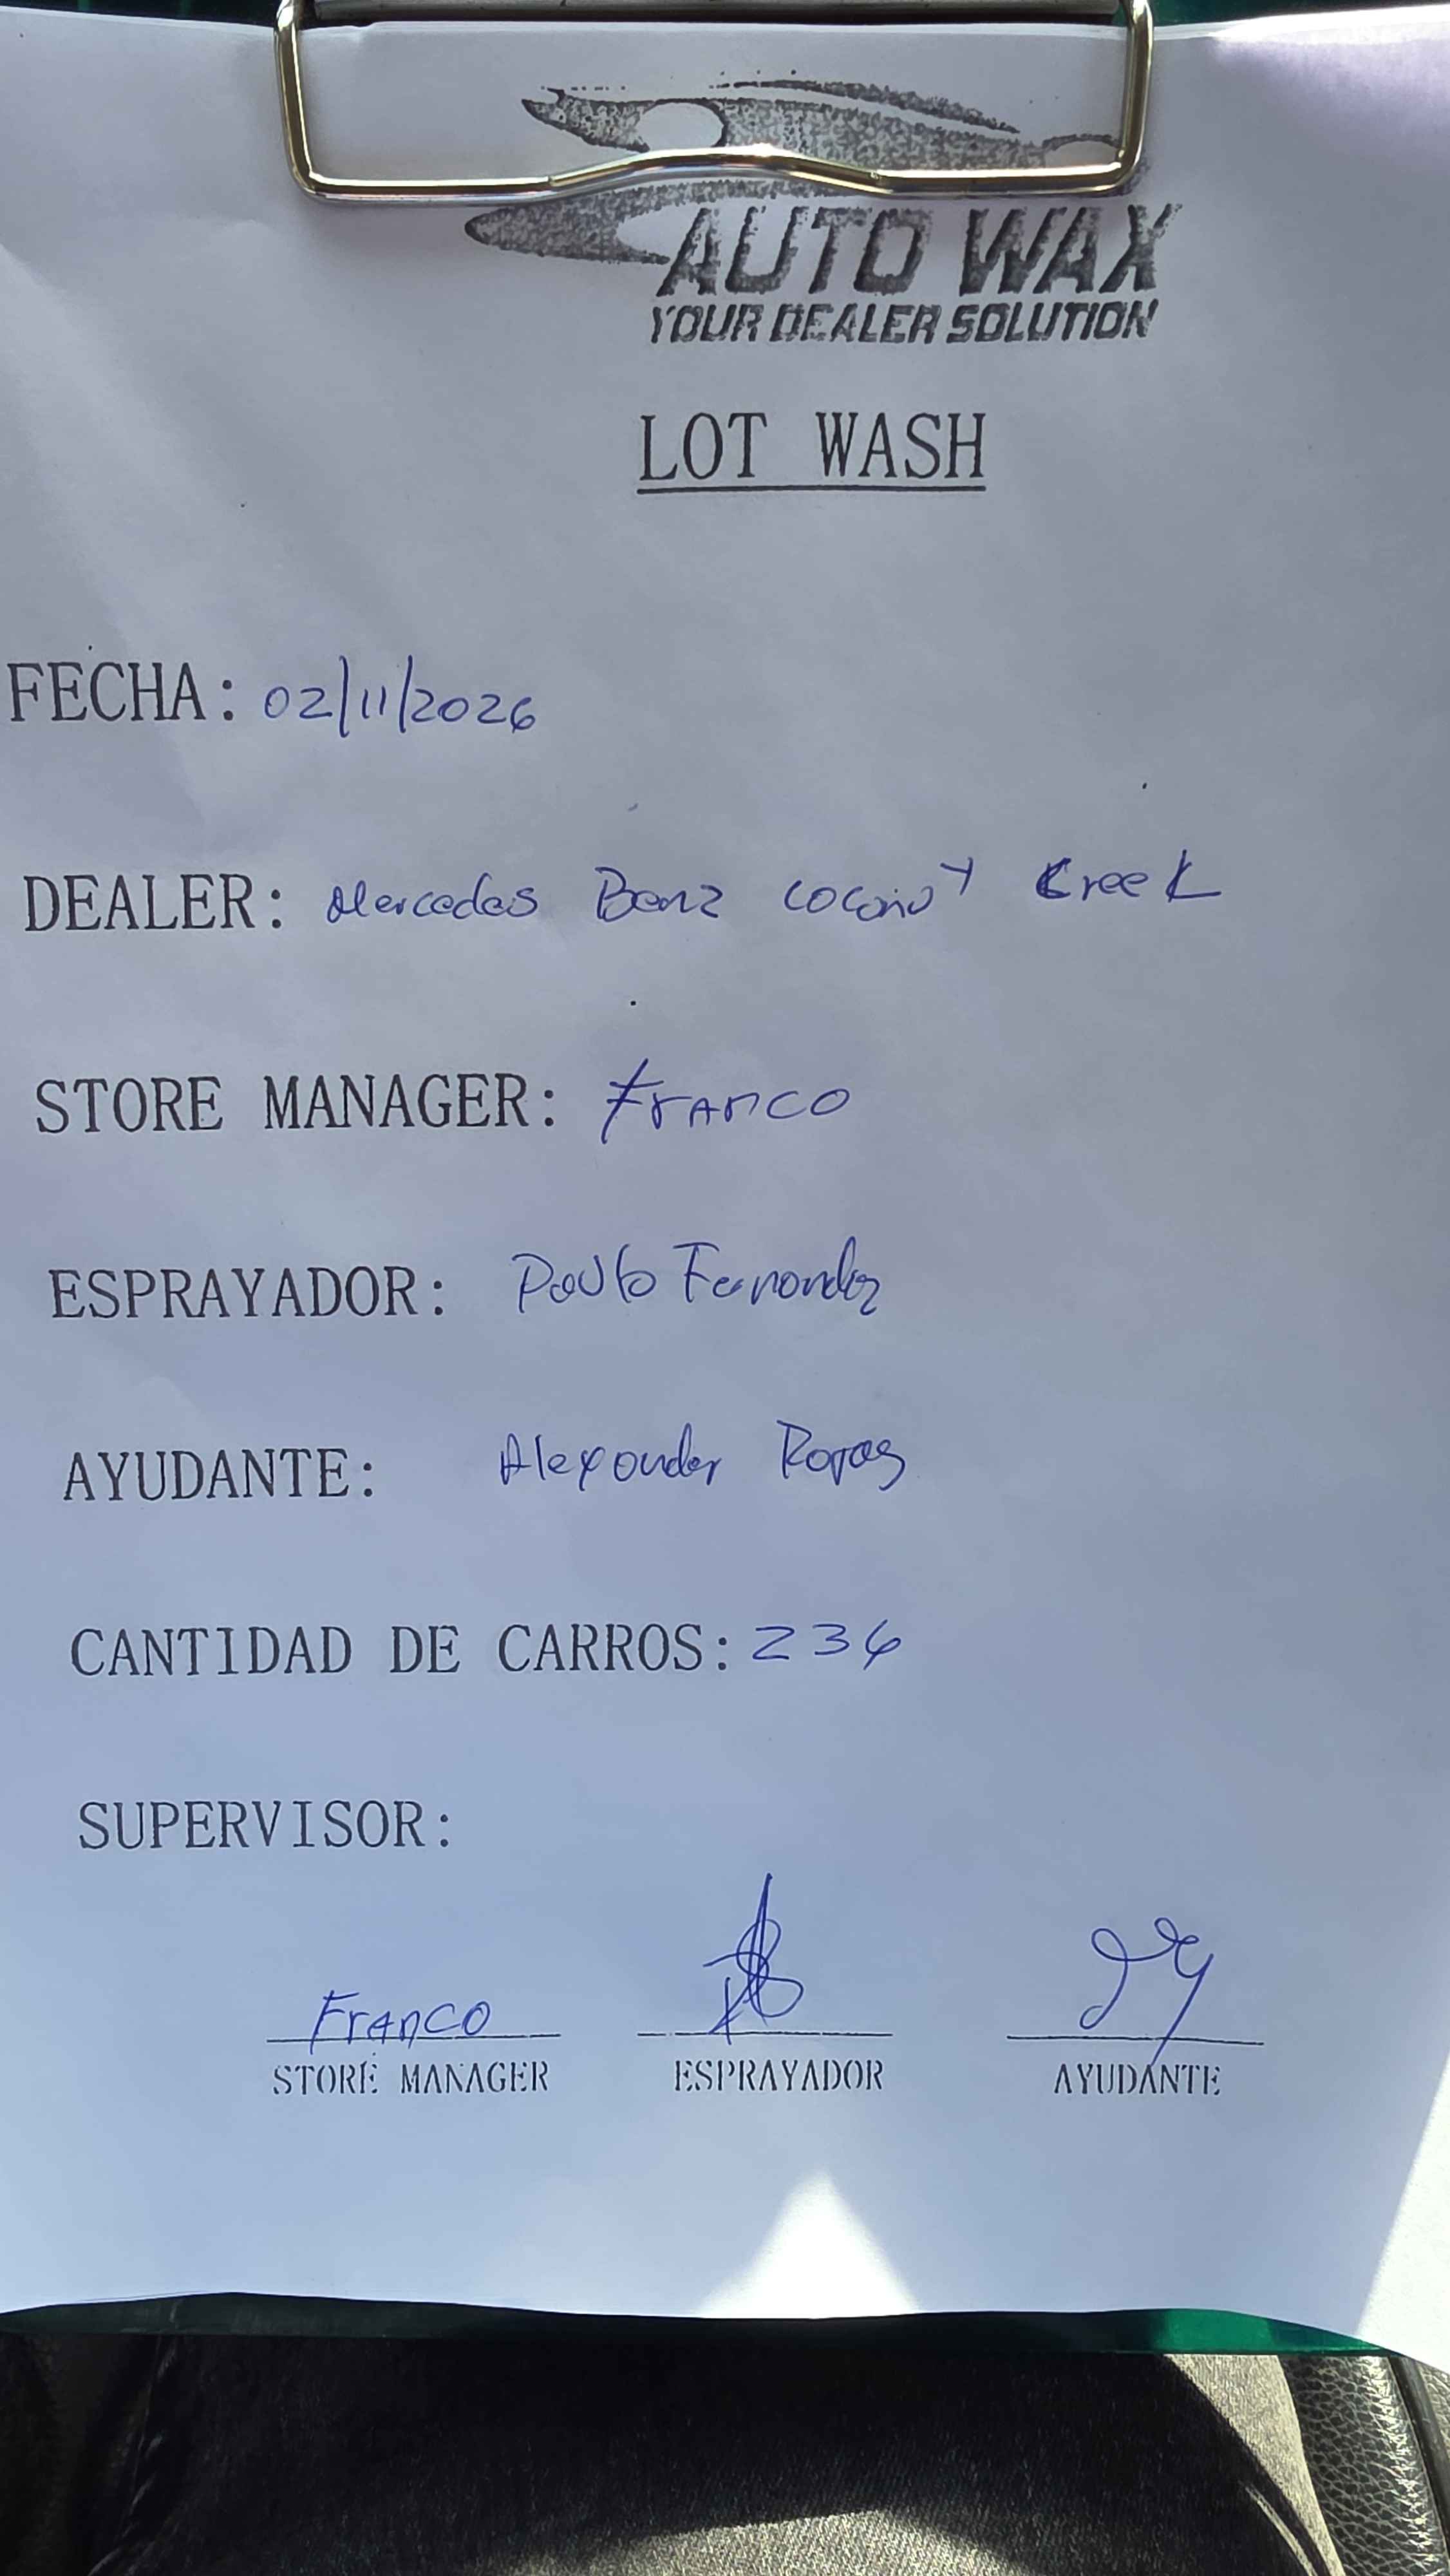 AUTO WAX
YOUR DEALER SOLUTION
LOT WASH
FECHA: 02/11/2026
DEALER: Mercedes Benz Coconut Creek
STORE MANAGER: Franco
ESPRAYADOR: Paulo Fernandez
AYUDANTE: Alexander Rojas
CANTIDAD DE CARROS: 236
SUPERVISOR:
Franco
STORE MANAGER ESPRAYADOR AYUDANTE